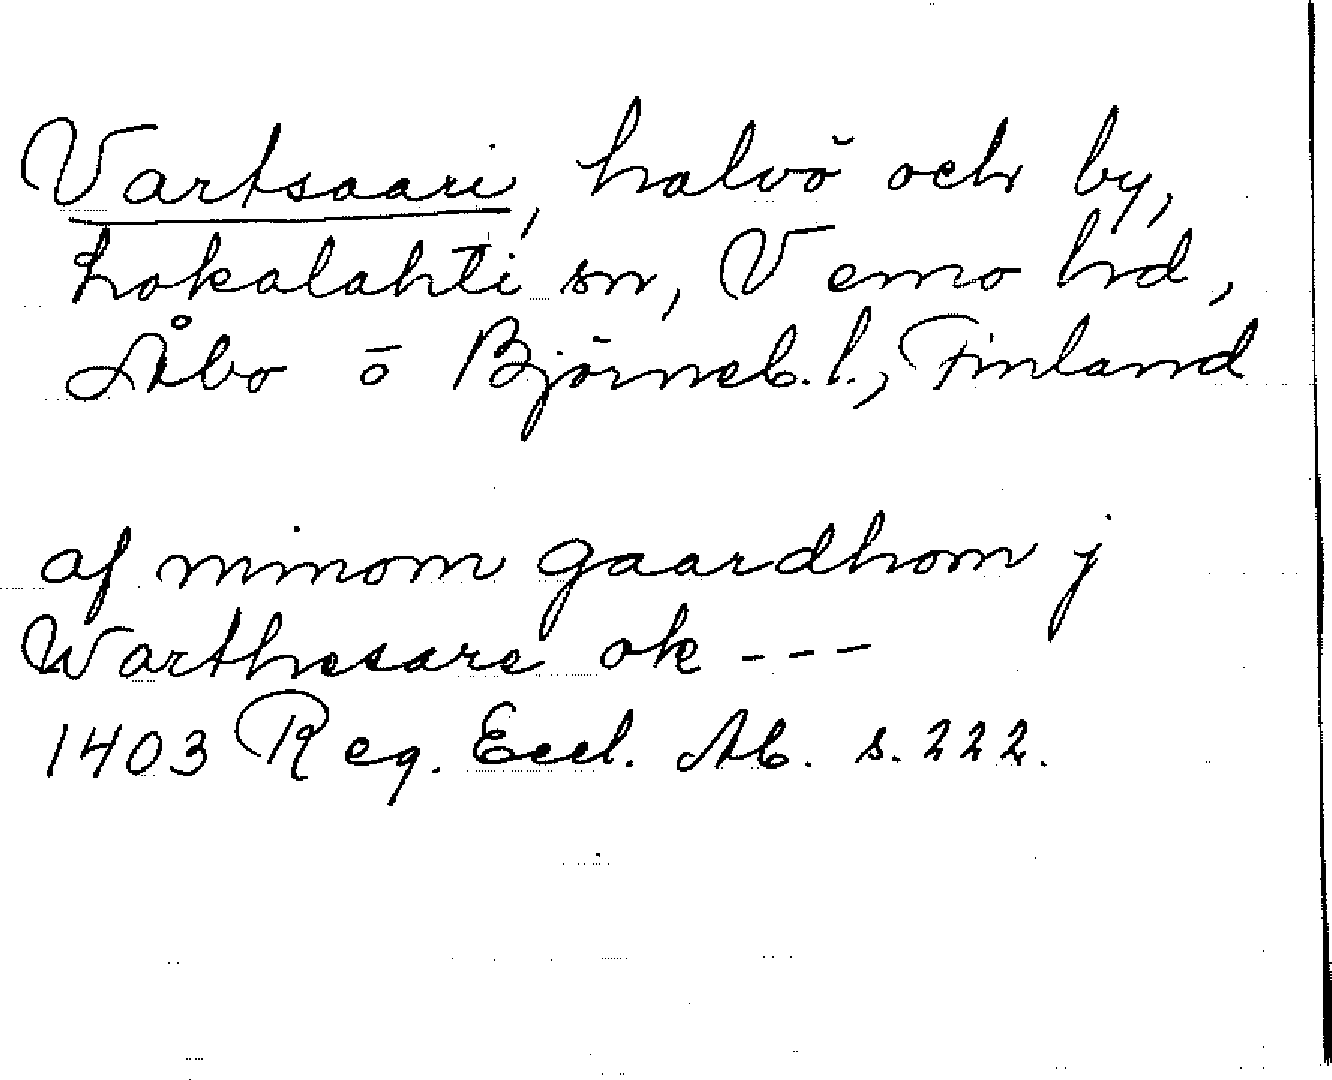 Vartsaari, halvö och by,
Lokalahti sn, Vemo hd,
Åbo o Björneb. l., Finland
af minom gaardhom j
Warthesare ok ---
1403 Reg. Eccl. Ab. s. 222.